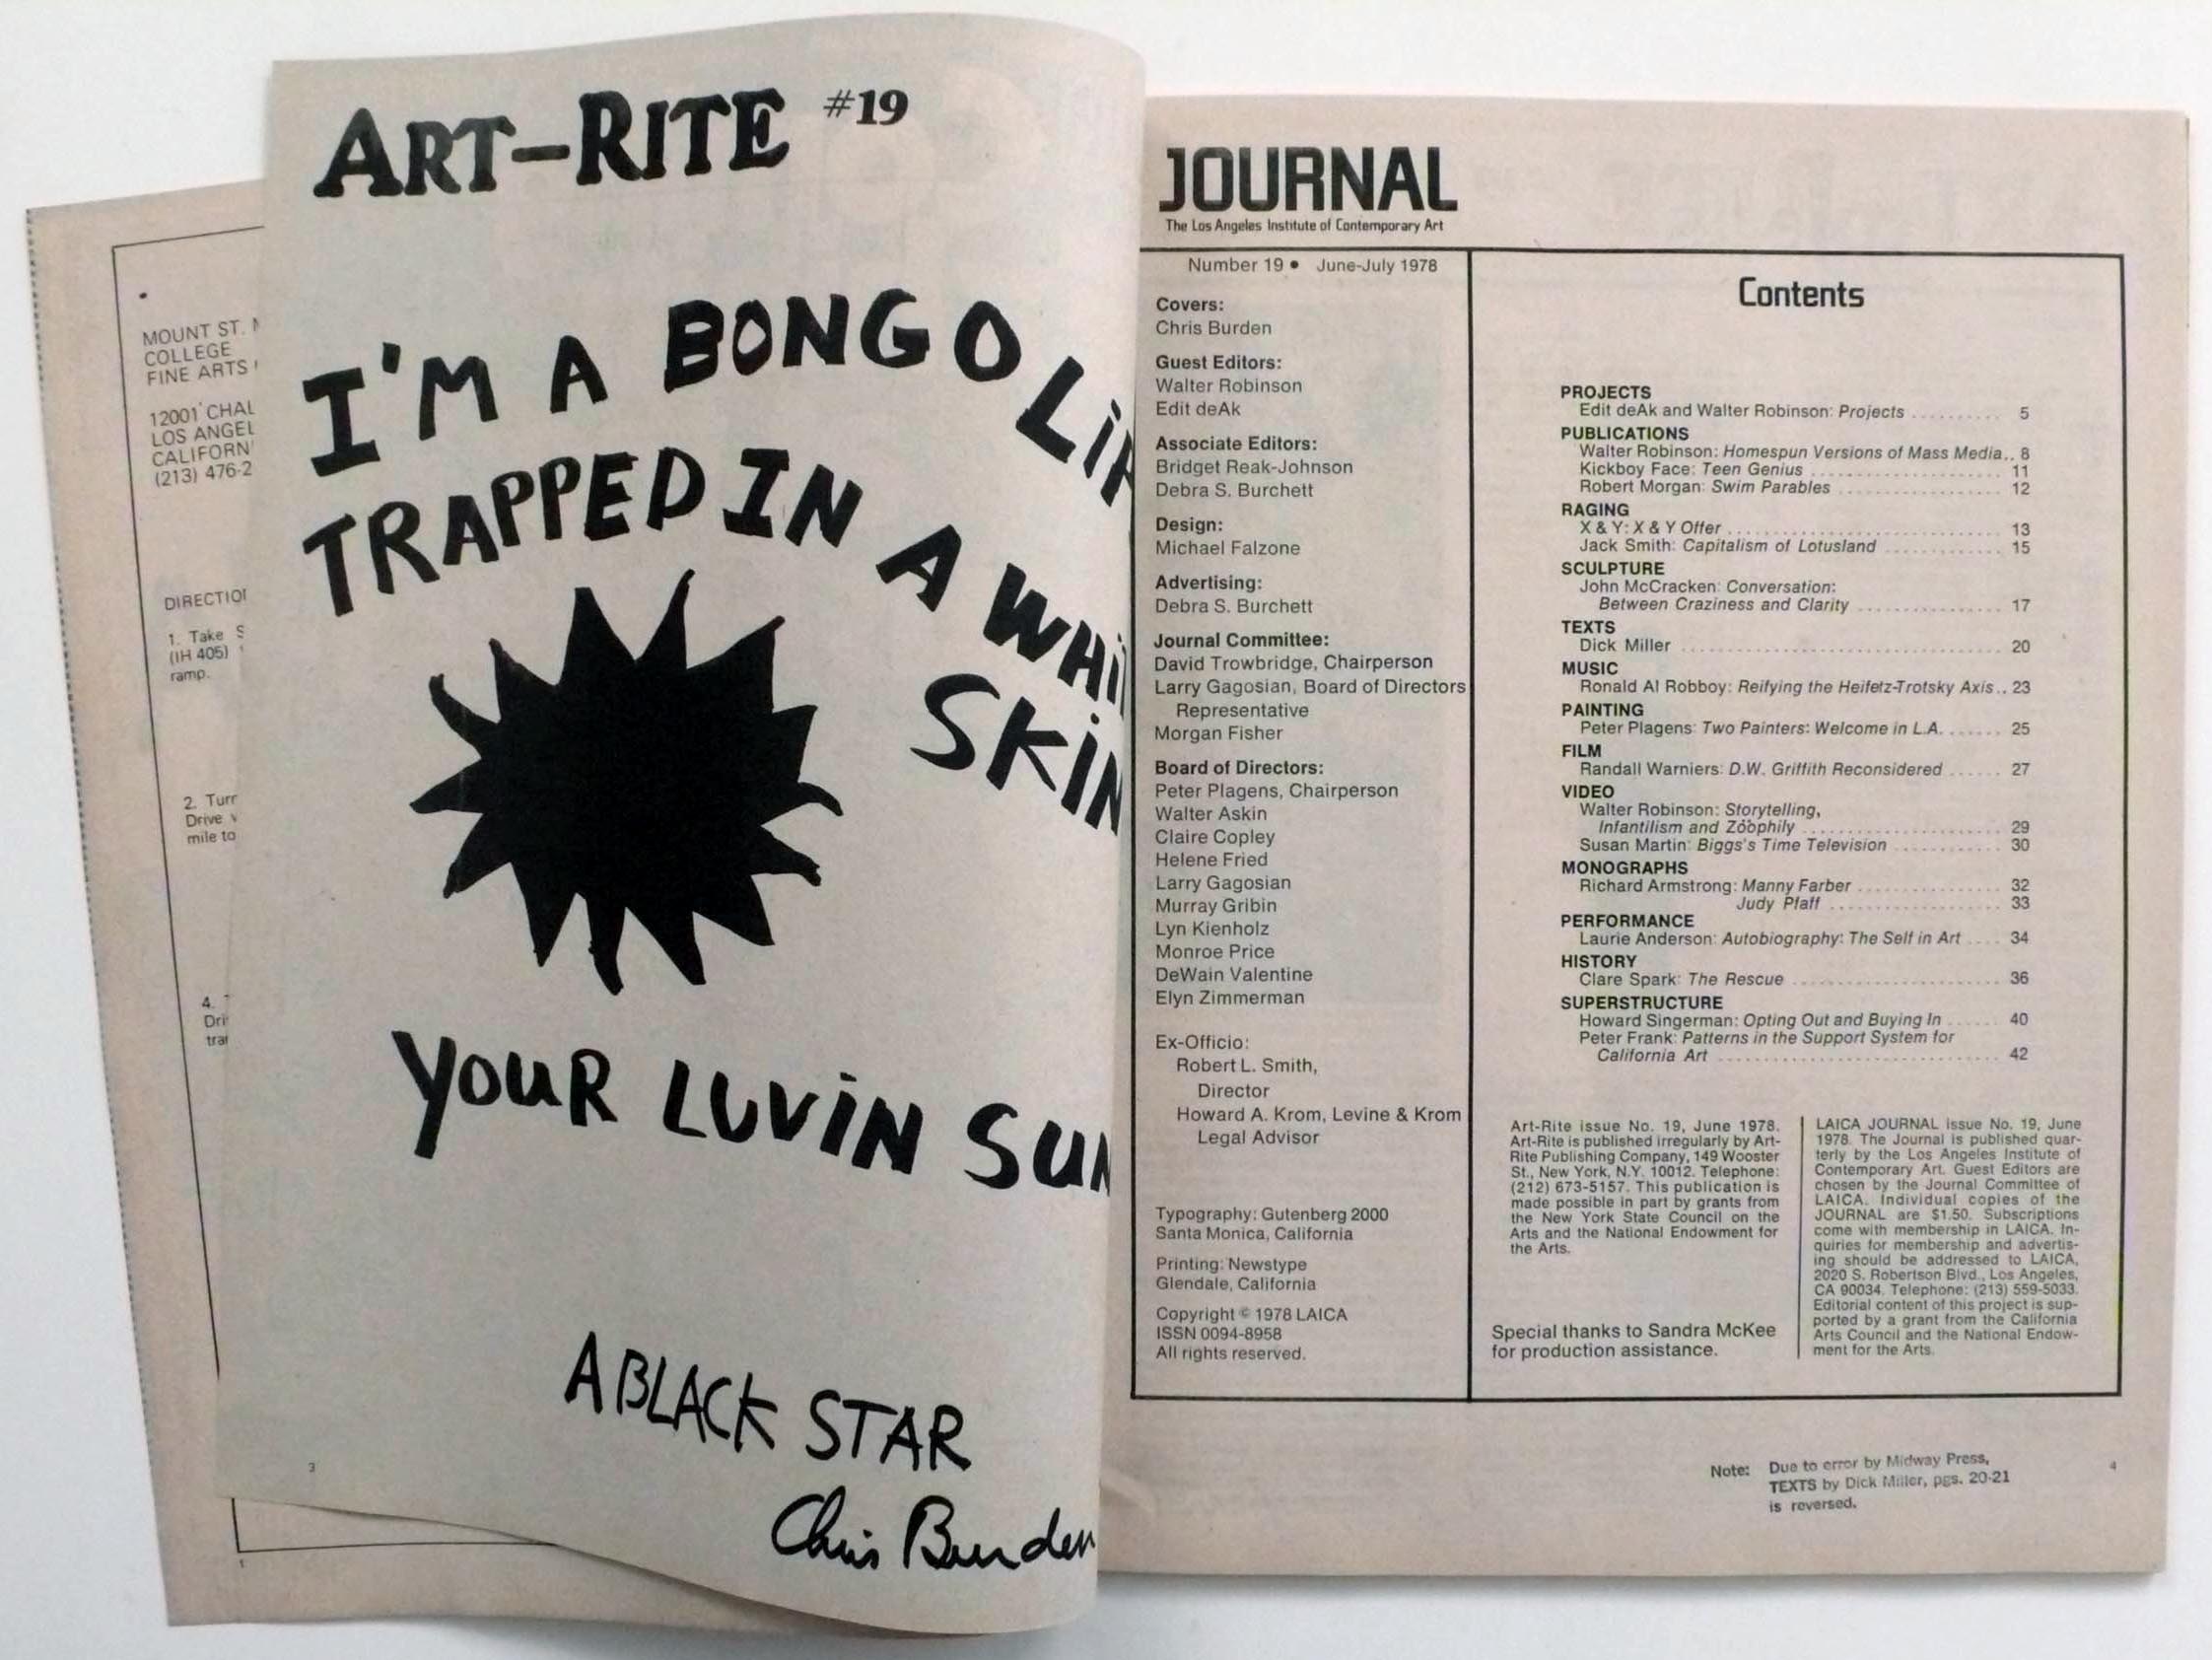 MOUNT ST.
COLLEGE
FINE ARTS
12001 CHAL
LOS ANGEL
CALIFORN
(213) 476-2
DIRECTIO
1. Take S
(IH 405)
ramp.
2. Turr
Drive
mile to
4.
Dri
trar
1
ART-RITE #19
I'M A BONGO
TRAPPED IN A WHIT
SKIN
YOUR LUVIN SUN
A BLACK STAR
Chris Burden
3
JOURNAL
The Los Angeles Institute of Contemporary Art
Number 19 • June-July 1978
Covers:
Chris Burden
Guest Editors:
Walter Robinson
Edit deAk
Associate Editors:
Bridget Reak-Johnson
Debra S. Burchett
Design:
Michael Falzone
Advertising:
Debra S. Burchett
Journal Committee:
David Trowbridge, Chairperson
Larry Gagosian, Board of Directors
Representative
Morgan Fisher
Board of Directors:
Peter Plagens, Chairperson
Walter Askin
Claire Copley
Helene Fried
Larry Gagosian
Murray Gribin
Lyn Kienholz
Monroe Price
DeWain Valentine
Elyn Zimmerman
Ex-Officio:
Robert L. Smith,
Director
Howard A. Krom, Levine & Krom
Legal Advisor
Typography: Gutenberg 2000
Santa Monica, California
Printing: Newstype
Glendale, California
Copyright © 1978 LAICA
ISSN 0094-8958
All rights reserved.
Contents
PROJECTS
Edit deAk and Walter Robinson: Projects .......... 5
PUBLICATIONS
Walter Robinson: Homespun Versions of Mass Media.. 8
Kickboy Face: Teen Genius .......... 11
Robert Morgan: Swim Parables .......... 12
RAGING
X & Y: X & Y Offer .......... 13
Jack Smith: Capitalism of Lotusland .......... 15
SCULPTURE
John McCracken: Conversation:
Between Craziness and Clarity .......... 17
TEXTS
Dick Miller .......... 20
MUSIC
Ronald Al Robboy: Reifying the Heifetz-Trotsky Axis.. 23
PAINTING
Peter Plagens: Two Painters: Welcome in L.A. ....... 25
FILM
Randall Warniers: D.W. Griffith Reconsidered ...... 27
VIDEO
Walter Robinson: Storytelling,
Infantilism and Zöophily .......... 29
Susan Martin: Biggs's Time Television .......... 30
MONOGRAPHS
Richard Armstrong: Manny Farber .......... 32
Judy Pfaff .......... 33
PERFORMANCE
Laurie Anderson: Autobiography: The Self in Art .... 34
HISTORY
Clare Spark: The Rescue .......... 36
SUPERSTRUCTURE
Howard Singerman: Opting Out and Buying In ...... 40
Peter Frank: Patterns in the Support System for
California Art .......... 42
Art-Rite issue No. 19, June 1978.
Art-Rite is published irregularly by Art-
Rite Publishing Company, 149 Wooster
St., New York, N.Y. 10012. Telephone:
(212) 673-5157. This publication is
made possible in part by grants from
the New York State Council on the
Arts and the National Endowment for
the Arts.
Special thanks to Sandra McKee
for production assistance.
LAICA JOURNAL issue No. 19, June
1978. The Journal is published quar-
terly by the Los Angeles Institute of
Contemporary Art. Guest Editors are
chosen by the Journal Committee of
LAICA. Individual copies of the
JOURNAL are $1.50. Subscriptions
come with membership in LAICA. In-
quiries for membership and advertis-
ing should be addressed to LAICA,
2020 S. Robertson Blvd., Los Angeles,
CA 90034. Telephone: (213) 559-5033.
Editorial content of this project is sup-
ported by a grant from the California
Arts Council and the National Endow-
ment for the Arts.
Note: Due to error by Midway Press,
TEXTS by Dick Miller, pgs. 20-21
is reversed.
4